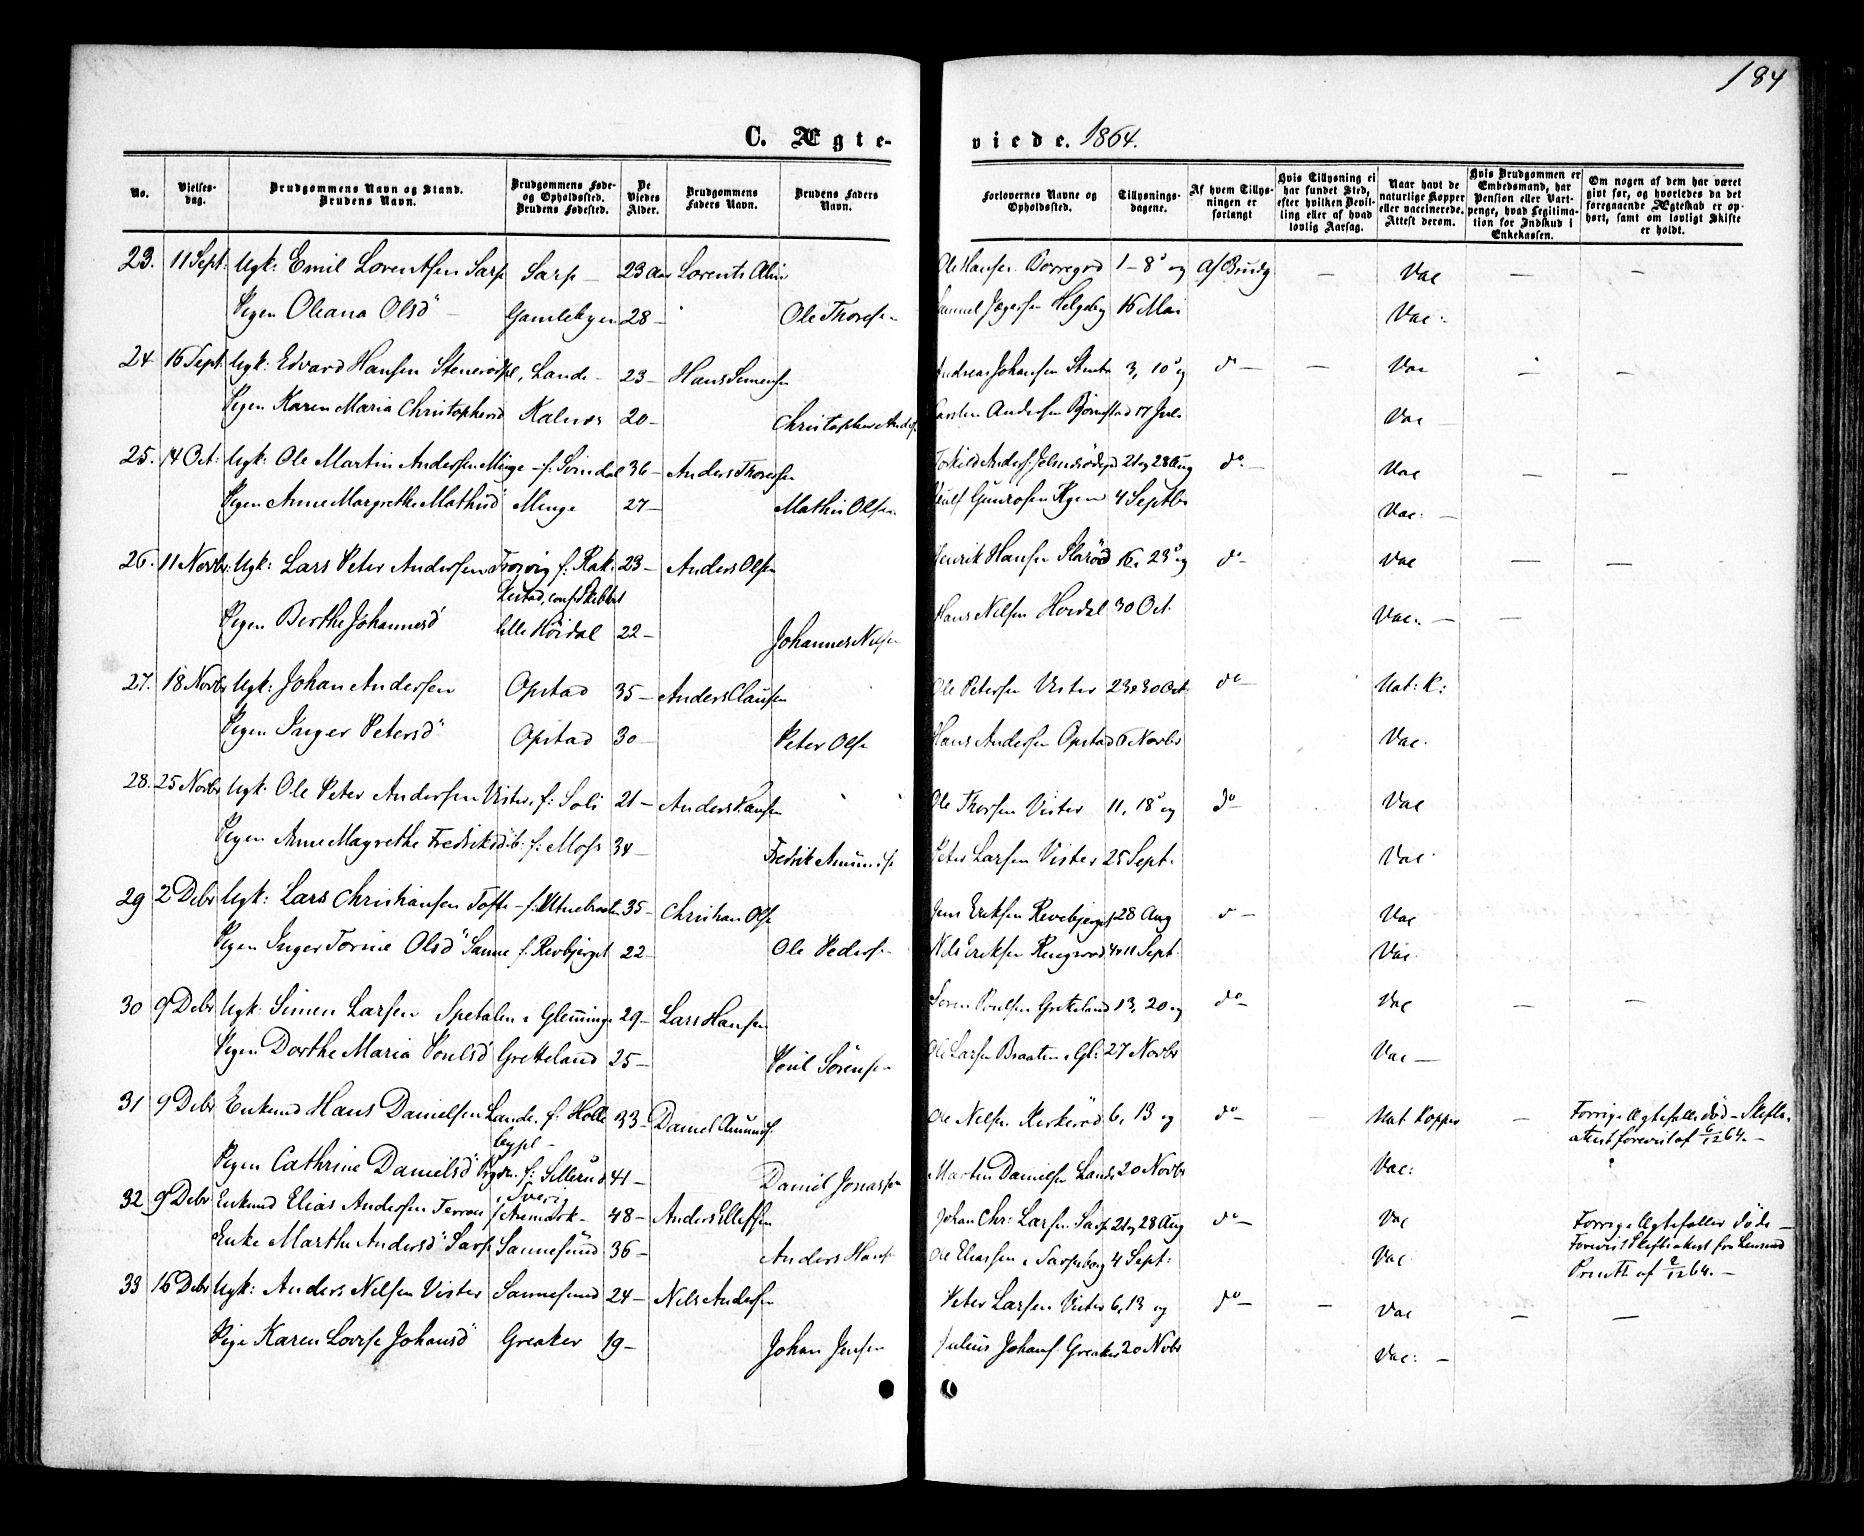 184
C. Ægte-
viede. 1864.
No.
Vielses-
dag.
Brudgommens Navn og Stand.
Brudens Navn.
Brudgommens Føde-
og Opholdssted.
Brudens Fødested.
De
Viedes
Alder.
Brudgommens
Faders Navn.
Brudens Faders
Navn.
Forlovernes Navne og
Opholdssted.
Tillysnings-
dagene.
Af hvem Tillys-
ningen er
forlangt
Hvis Tillysning ei
har fundet Sted,
efter hvilken Bevil-
ling eller af hvad
lovlig Aarsag.
Naar havt de
naturlige Kopper
eller vaccinerede.
Attest derom.
Hvis Brudgommen er
Embedsmand, har
Pension eller Vart-
penge, hvad Legitima-
tion for Indskud i
Enkekassen.
Om nogen af dem har været
givt før, og hvorledes da det
foregaaende Ægteskab er op-
hørt, samt om lovligt Skifte
er holdt.
23. 11 Sept: Ugk: Emil Lorentsen Sarp Sarp — 23 aar Lorents Ole Hansen Borregrd 1 – 8 og Af Brudg — Vac — —
Pigen Oleana Olsd Gamlebyen 28 — Ole Thoresen Samuel Helgeby 16 Mai Vac:
24 16 Sept: Ugk: Edvard Hansen Lande — 23 — Hans Simensen Andreas Johansen 3, 10 og do — — Vac — —
Pigen Karen Maria Christophersd Kalnes 20 — Christopher Anders Carsten Andersen Bjørnstad 17 Juli Vac —
25. 14 Oct: Ugk: Ole Martin Andersen Minge — f: Svindal 36 — Anders Thoresen 21 og 28 Aug do. — Vac — —
Pigen Anne Margrethe Mathisd Minge 27 — Mathis Olsen 4 Septbr Vac: —
26. 11 Novbr: Ugk: Lars Peter Andersen f: Rak- 23 — Anders Olsen Henrik Hansen 16, 23 og do — Vac — —
kestad, conf: Skibtvet
Pigen Berthe Johannesd lille Høidal 22 — Johannes Nilsen Hans Nilsen Hoidal 30 Oct. Vac. — —
27. 18 Novbr Ugk: Johan Andersen Opstad 35 — Anders Clausen Ole Petersen Vister 23 & 30 Oct. do — Nat: K:
Pigen Inger Petersd Opstad 30 — Peter Olsen Hans Andersen Opstad 6 Novbr Vac.
28. 25 Novbr Ugk. Ole Peter Andersen Vister, f: Soli 21 — Anders Hansen Ole Thorsen Vister 11, 18 og do — Vac
Pigen Anne Magrethe Fredriksd f: Moss 34 — Fredrik Amunds Peter Larsen Vister 25 Sept. Vac
29 2 Debr Ugk: Lars Christiansen Tofte — 35 — Christian Olsen Jens Eriksen Revebjerget 28 Aug — Vac
Pigen Inger Torine Olsd Sanne f. Revbjerget 22 — Ole Peders. Nils Eriksen 4 & 11 Sept. Vac.
30 9 Debr Ugk: Simen Larsen Spetalen i Glemminge 29 — Lars Hansen Søren Poulsen Gretteland 13, 20 og do — Vac — —
Pigen Dorthe Maria Poulsd Gretteland 25 — Poul Sørensen Ole Larsen Braaten i Gl: 27 Novbr Vac —
31 9 Debr Enkemd Hans Danielsen Lande. f. Holle 33 — Daniel Amunds. Ole Nilsen Kirkerød 6, 13 og do — — Nat Kopper — Forrige Ægtefælle død — Skifte-
bypl — attest forevist af 6/12 64. —
Pigen Cathrine Danielsd f: Sillerud 41 — Daniel Jonassen Martin Danielsen Lande 20 Novbr Vac:
i Sverig
32. 9 Debr Enkemd Elias Andersen f Aremark — 48 — Anders Ellefsen Johan Chr: Larsen Sarp 21 og 28 Aug do — Vac Forrige Ægtefæller døde —
Enke Marthe Andersd Sarp Sannesund 36 — Anders Hans Ole Eliassen i Sarpsborg 4 Sept: Vac. Forevist Skifteattest fra Lensmd
af 2/12 64. —
33 16 Debr Ugk: Anders Nilsen Vister Sannesund 24 — Nils Andersen Peter Larsen Vister 6, 13 og do — — Vac — —
Pige Karen Lovise Johansd Greaker 19 — Johan Jensen Julius Johans. Greaker 20 Novbr Vac: —